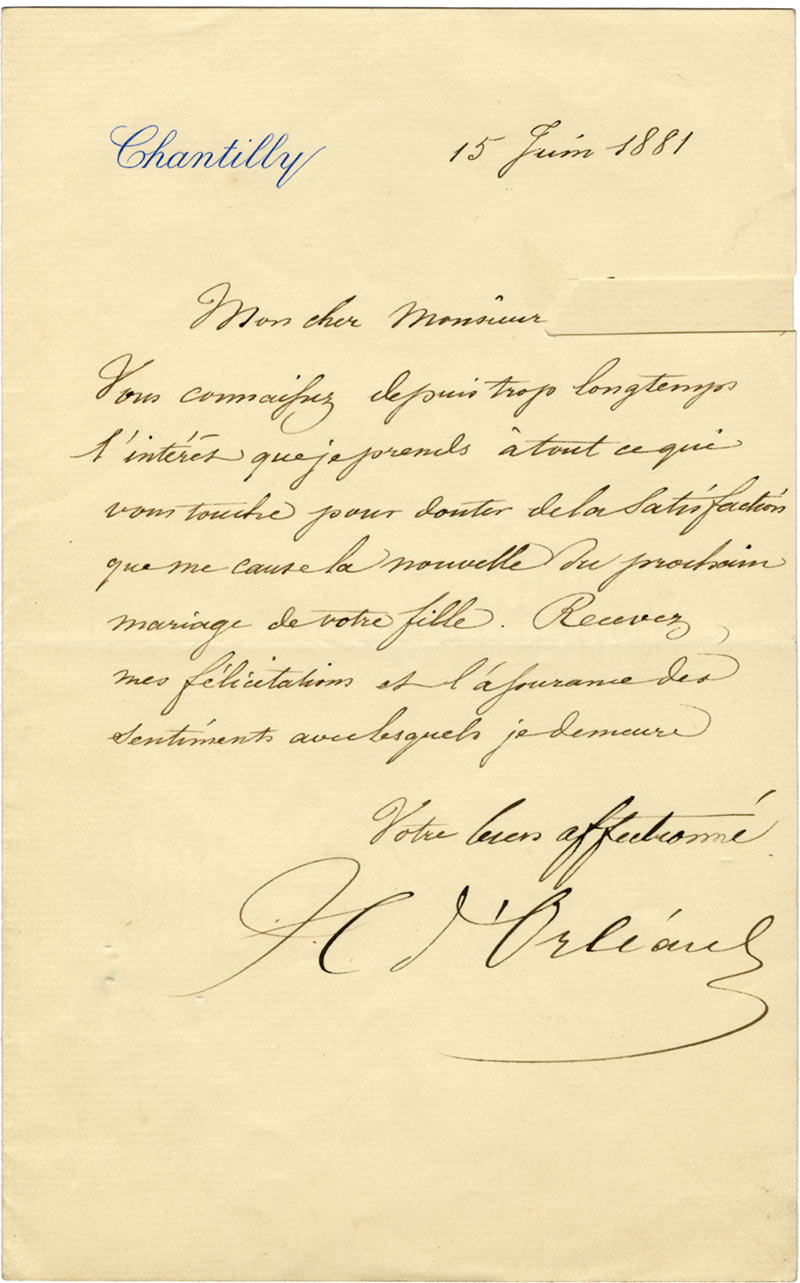 Chantilly
15 Juin 1881
Mon cher Monsieur
Vous connaissez depuis trop longtemps
l'intérêt que je prends à tout ce qui
vous touche pour douter de la satisfaction
que me cause la nouvelle du prochain
mariage de votre fille. Recevez,
mes félicitations et l'assurance des
sentiments avec lesquels je demeure
Votre bien affectionné
H d'Orléans